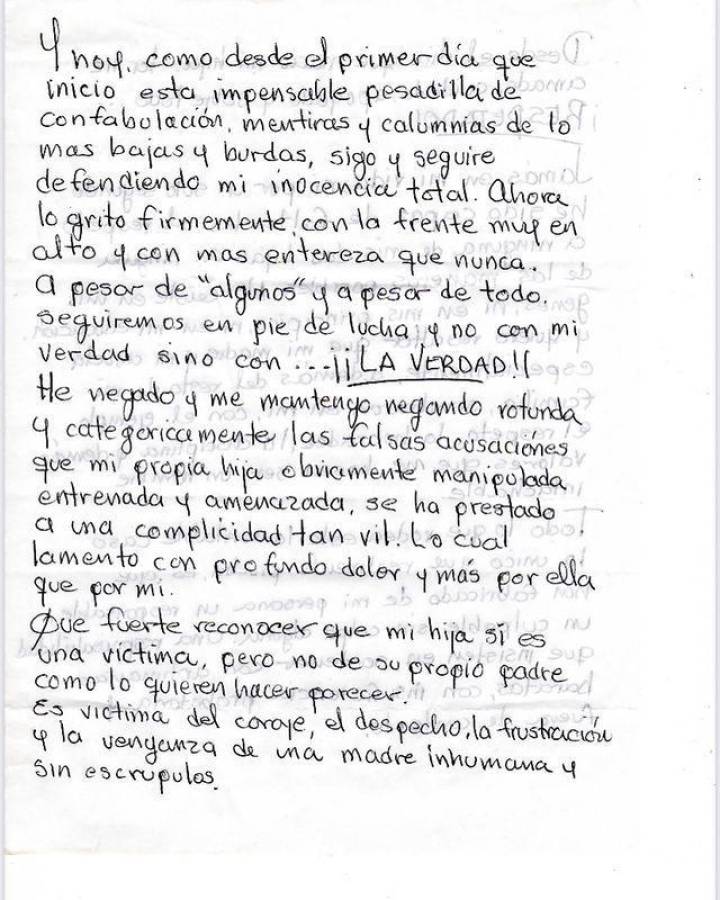 Y hoy, como desde el primer dia que
inicio esta impensable pesadilla de
confabulación, mentiras y calumnias de lo
mas bajas y burdas, sigo y seguire
defendiendo mi inocencia total. Ahora
lo grito firmemente, con la frente muy en
alto y con mas entereza que nunca.
A pesar de "algunos" y a pesar de todo.
seguiremos en pie de lucha y no con mi
verdad sino con ...¡¡LA VERDAD!!
He negado y me mantengo negando rotunda
y categoricamente las falsas acusaciones
que mi propia hija obviamente manipulada
entrenada y amenazada, se ha prestado
a una complicidad tan vil. Lo cual
lamento con profundo dolor y más por ella
que por mi.
Que fuerte reconocer que mi hija si es
una victima, pero no de su propio padre
como lo quieren hacer parecer.
Es victima del coraje, el despecho, la frustración
y la venganza de una madre inhumana y
sin escrupulos.